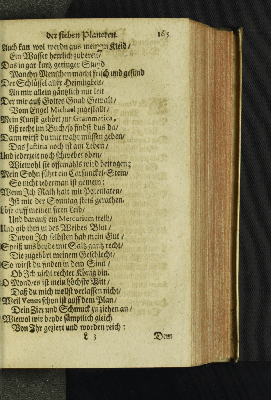 der sieben Planeten. 165
Auch kan wol werden aus meinem Kleid/
Ein Wasser herrlich zubereit/
Das in gar kurtz geringer Stund
Manchn Menschen macht frisch und gesund
Der Schlüssel aller Heimligkeit/
An mir allein gäntzlich mit leit
Der mir auß Gottes Gnad Gewalt/
Vom Engel Michael zugestalt/
Mein Kunst gehört zur Grammatica,
List recht im Buch so findst du da/
Dann wirstu mir warheit müssen geben/
Das Justitia noch ist am Leben/
Und jederzeit noch schwebet oben/
Wiewohl sie offtmahls wird betrogen;
Mein Sohn führt ein Carfunckel-Stein/
So nicht jederman ist gemein;
Wenn Ich Rath halt mit Potentaten/
Ist mir der Sonntag stets gerathen.
auff meinen ihren Leid/
Und daraus ein Mercurium treib/
Und gib ihn in des Weibes Blut/
Davon Ich selbsten hab mein Gut/
Speiß uns beyde mit Saltz gantz recht/
Die zugehört meinem Geschlecht/
So wirst du finden in dem Sinn/
Ob Ich nicht rechter König bin.
O Mond/es ist mein höchste Bitt/
Daß du mich wollst verlassen nicht/
Weil Venus schon ist auff dem Plan/
Dein Zier und Schmuck zu ziehen an/
Wiewol wir beyde sämptlich gleich
Von Ihr geziert und worden reich:
L 3 Dem